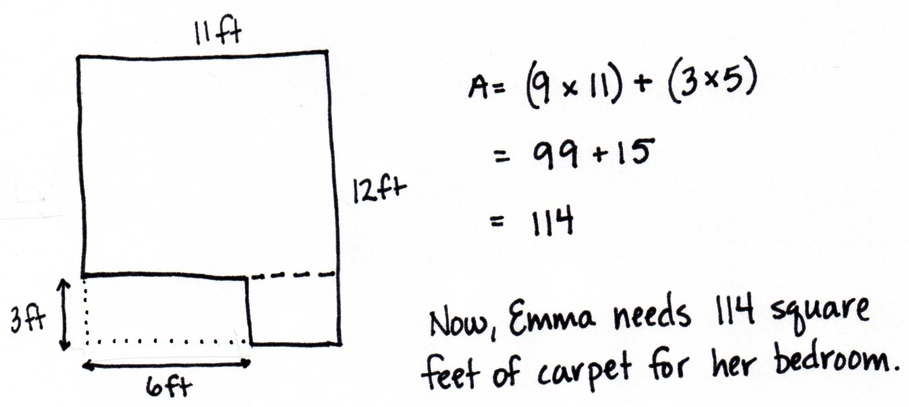 11ft
12ft
3ft
6ft
A= (9 × 11) + (3×5)
= 99 + 15
= 114
Now, Emma needs 114 square
feet of carpet for her bedroom.